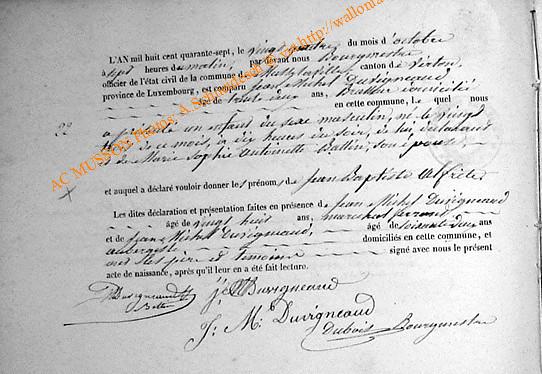 L'AN mil huit cent quarante-sept, le vingt quatre du mois d'octobre
à sept heures du matin, par devant nous Bourgmestre
officier de l'état civil de la commune de canton de Virton,
province de Luxembourg, est comparu Jean Michel Duvigneaud,
âgé de trente deux ans, domicilié
en cette commune, Le quel nous
22 a présenté un enfant du sexe masculin, né le vingt
de ce mois, à dix heures du soir, de lui, déclarant
et de Marie Sophie Antoinette son épouse,
et auquel a déclaré vouloir donner les prénoms de Jean Baptiste Alfred
Les dites déclaration et présentation faites en présence de Jean Michel Duvigneaud
âgé de vingt huit ans, maréchal ferrant
et de Jean Michel Duvigneaud, âgé de soixante deux ans
aubergiste domiciliés en cette commune, et
ont les père et témoins signé avec nous le présent
acte de naissance, après qu'il leur en a été fait lecture.
Duvigneaud
J. M. Duvigneaud
Dubois Bourgmestre
AC MUSSON Photos: A. Schroeder
http://wallonia